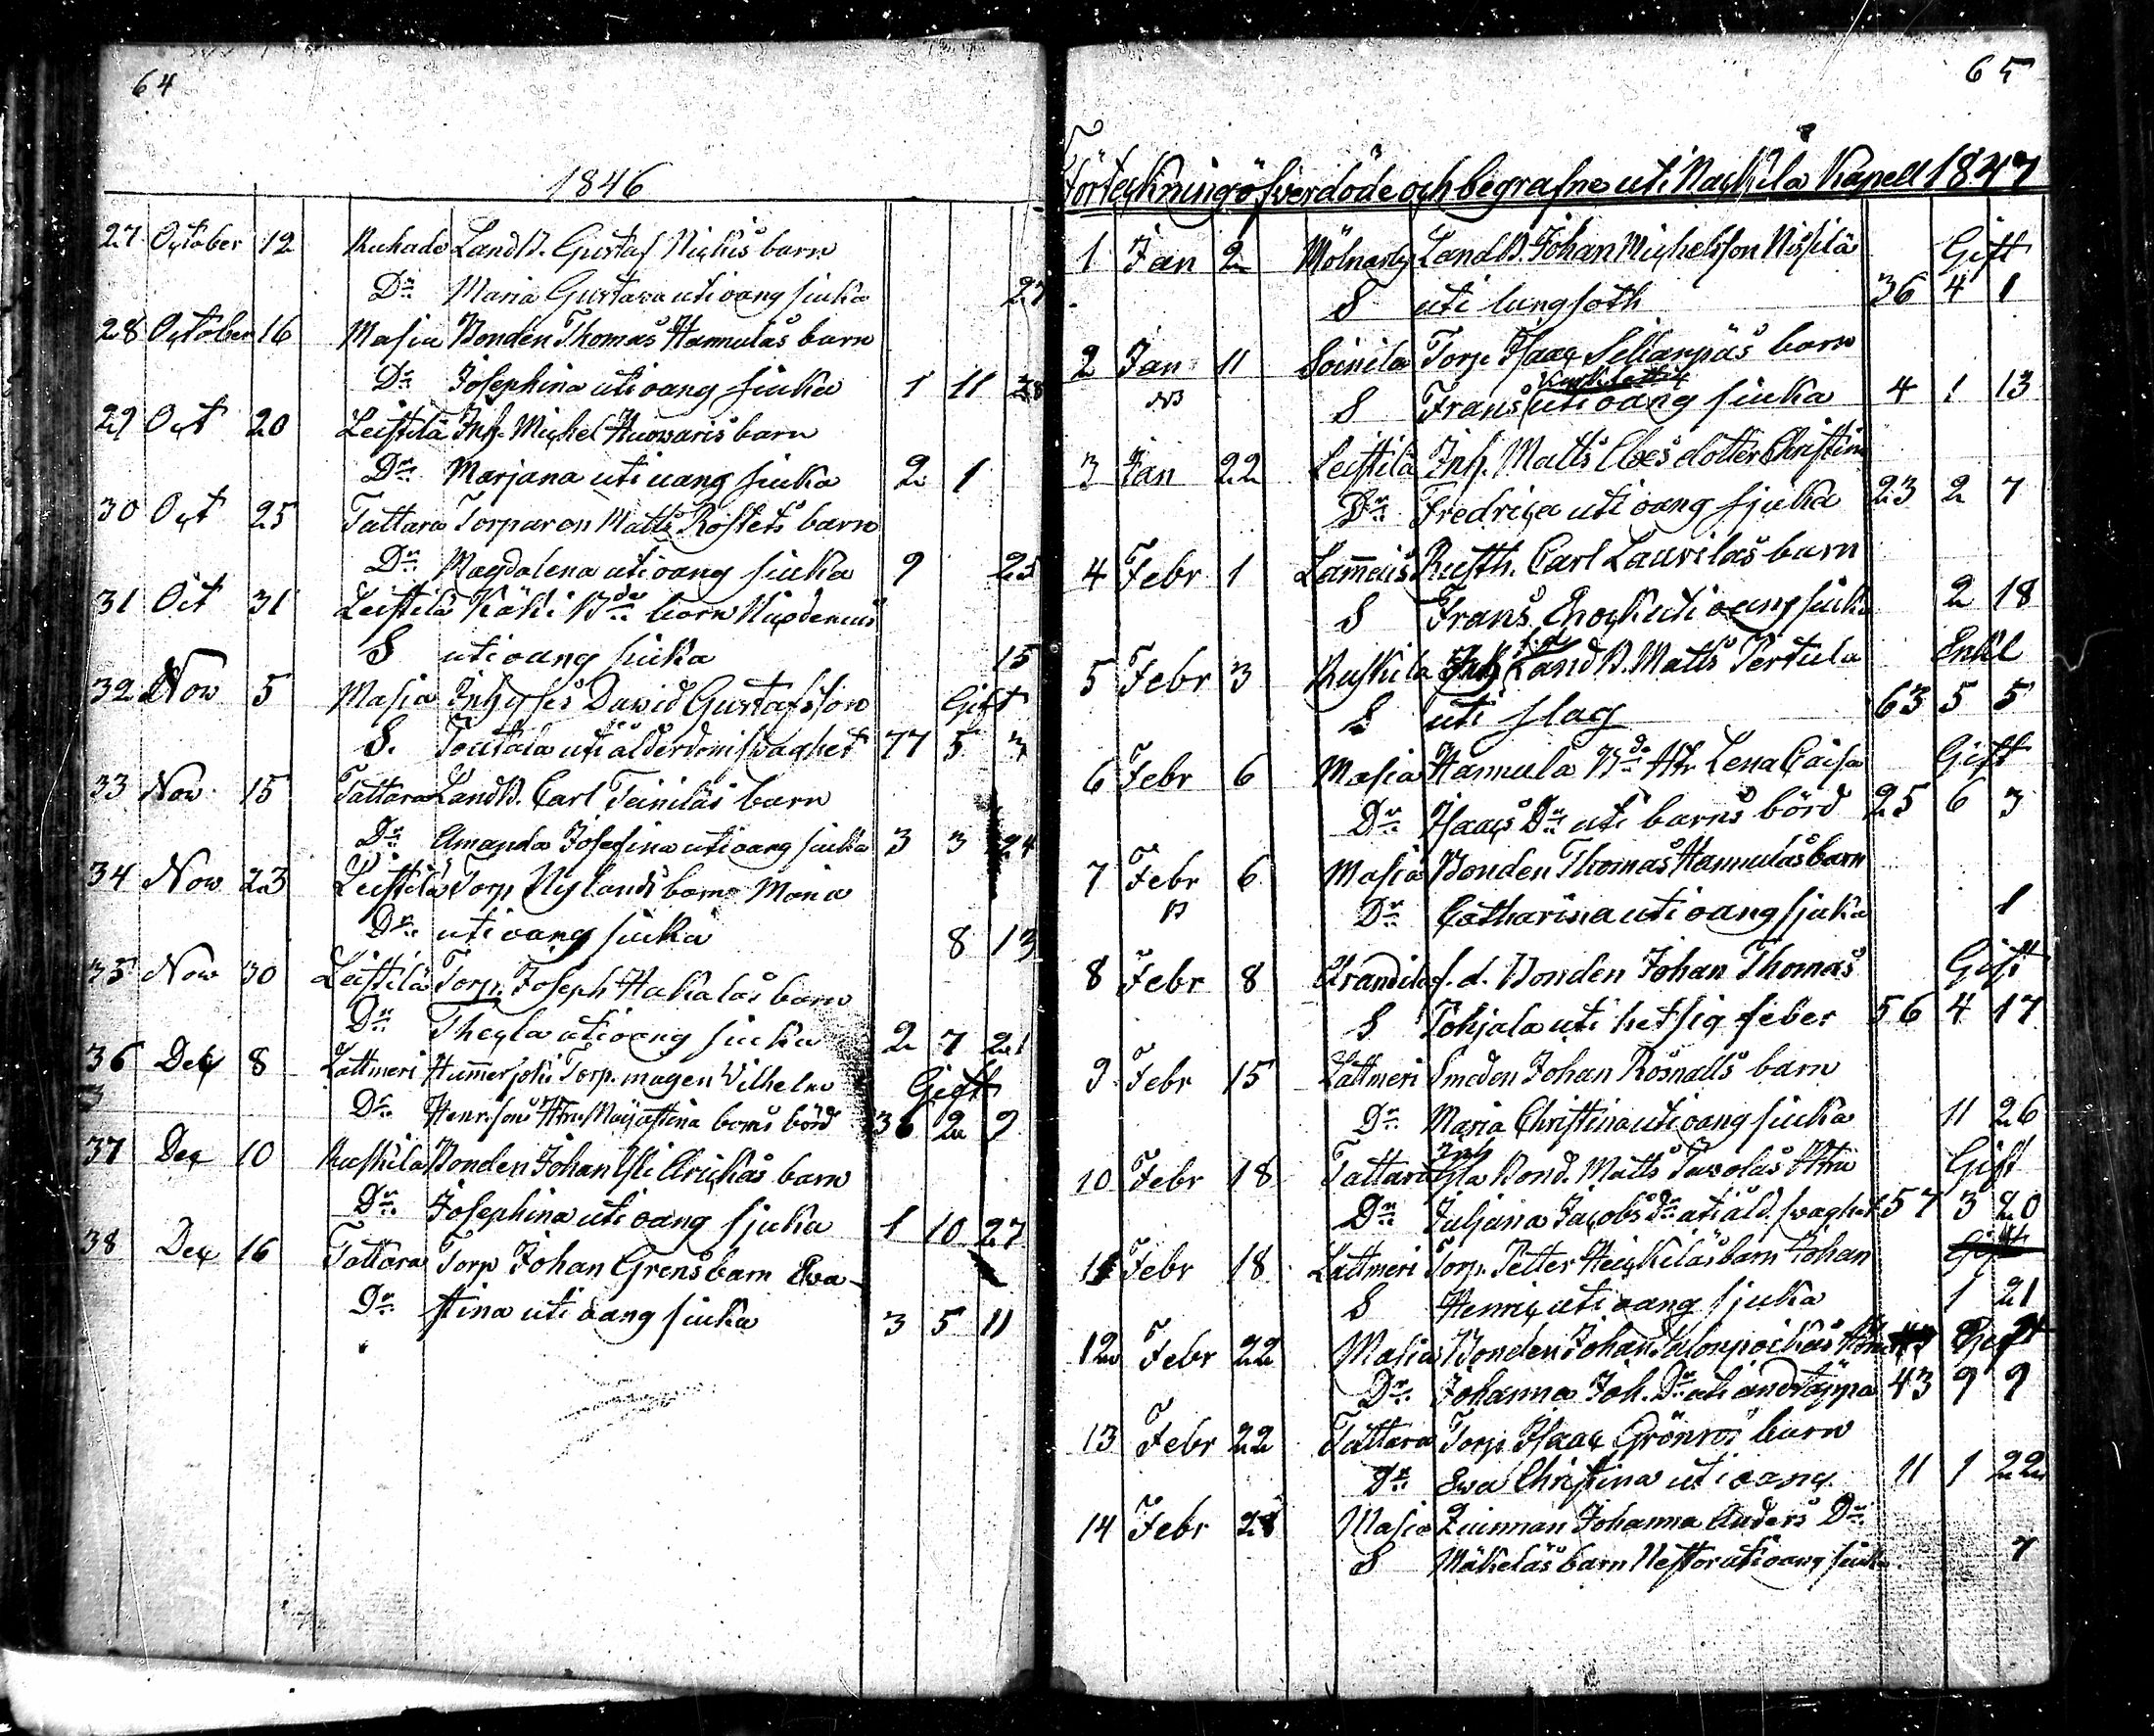 64
1846
27 October 12 Ruhade LandB. Gustaf Nickus barn
Dr. Maria Gustava uti oang siuka 27
28 October 16 Masia Bonden Thomas Hannulas barn
Dr. Josephina uti oang siuka 1 11 28
29 Oct 20 Leistilä Inh. Michel Huowaris barn
Dr. Marjana uti oang siuka 2 1
30 Oct 25 Tattara Torparen Matts Rostets barn
Dr. Magdalena uti oang siuka 9 25
31 Oct 31 Leistilä barn Nicodemus
S uti oang siuka 15
32 Nov 5 Masia Inhyses David Gustafsson Gift
S. Toutala uti ålderdoms swaghet 77 5 3
33 Nov. 15 Tattara LandB. Carl Teinilas barn
Dr. Amanda Josefina uti oang siuka 3 3 24
34 Nov 23 Leistilä Torp Nylands barn Maria
Dr. uti oang siuka 8 13
35 Nov 30 Leistilä Torp. Joseph Hakalas barn
Dr. Thecla uti oang siuka 2 7 21
36 Dec 8 Lattmeri Hummerjoki Torp. magen Vilhelm Gift
Dr. Henr.sons Hru Majastina barns börd 36 2 9
37 Dec 10 Ruskila Bonden Johan Yli Arickas barn
Dr. Josephina uti oang sjuka 1 10 27
38 Dec 16 Tattara Torp Johan Grens barn Eva-
Dr. stina uti oang siuka 3 5 11
65
Förteckning öfver döde och begrafne uti Nackila Kapell 1847
1 Jan 2 Mölnarby LandB. Johan Michelsson Nissilä Gift
S uti lungsoth 36 4 1
2 Jan 11 Soinila Torp. Isaac Sillanpäs barn
S Frans uti oang siuka 4 1 13
3 Jan 22 Leistilä Inh. Matts Claes dotter Christina
Dr. Fredrica uti oang sjuka 23 2 7
4 Febr 1 Lammais Rusth. Carl Laurilas barn
S Frans Enock uti oang siuka 2 18
5 Febr 3 Ruskila f.d. LandB. Matts Pertula Enkl
S uti slag 63 5 5
6 Febr 6 Masia Hannula Bde Hr Lena Caisa Gift
Dr. Isaacs Dr. uti barns börd 25 6 3
7 Febr 6 Masia Bonden Thomas Hannulas barn
Dr Catharina uti oang sjuka 1
8 Febr 8 f.d. Bonden Johan Thomas Gift
S Pohjala uti hetsig feber 56 4 17
9 Febr 15 Lattmeri Smeden Johan Rosnalls barn
Dr. Maria Christina uti oang siuka 11 26
10 Febr 18 Tattara Inh Bond. Matts Pawolas Hru Gift
Dr. Juljana Jacobs Dr. uti åld. swaghet 57 3 20
11 Febr 18 Lattmeri Torp. Petter Heickiläs barn Johan Gift
S Henric uti oang sjuka 1 21
12 Febr 22 Masia Bonden Johan Gift
Dr. Johanna Joh. Dr. uti andtäppa 43 9 9
13 Febr 22 Tattara Torp. Isaac Grönros barn
Dr. Ewa Christina uti oang. 11 1 22
14 Febr 28 Masia Johanna Anders Dr.
S Mäkeläs barn Nestor uti oang siuka 7